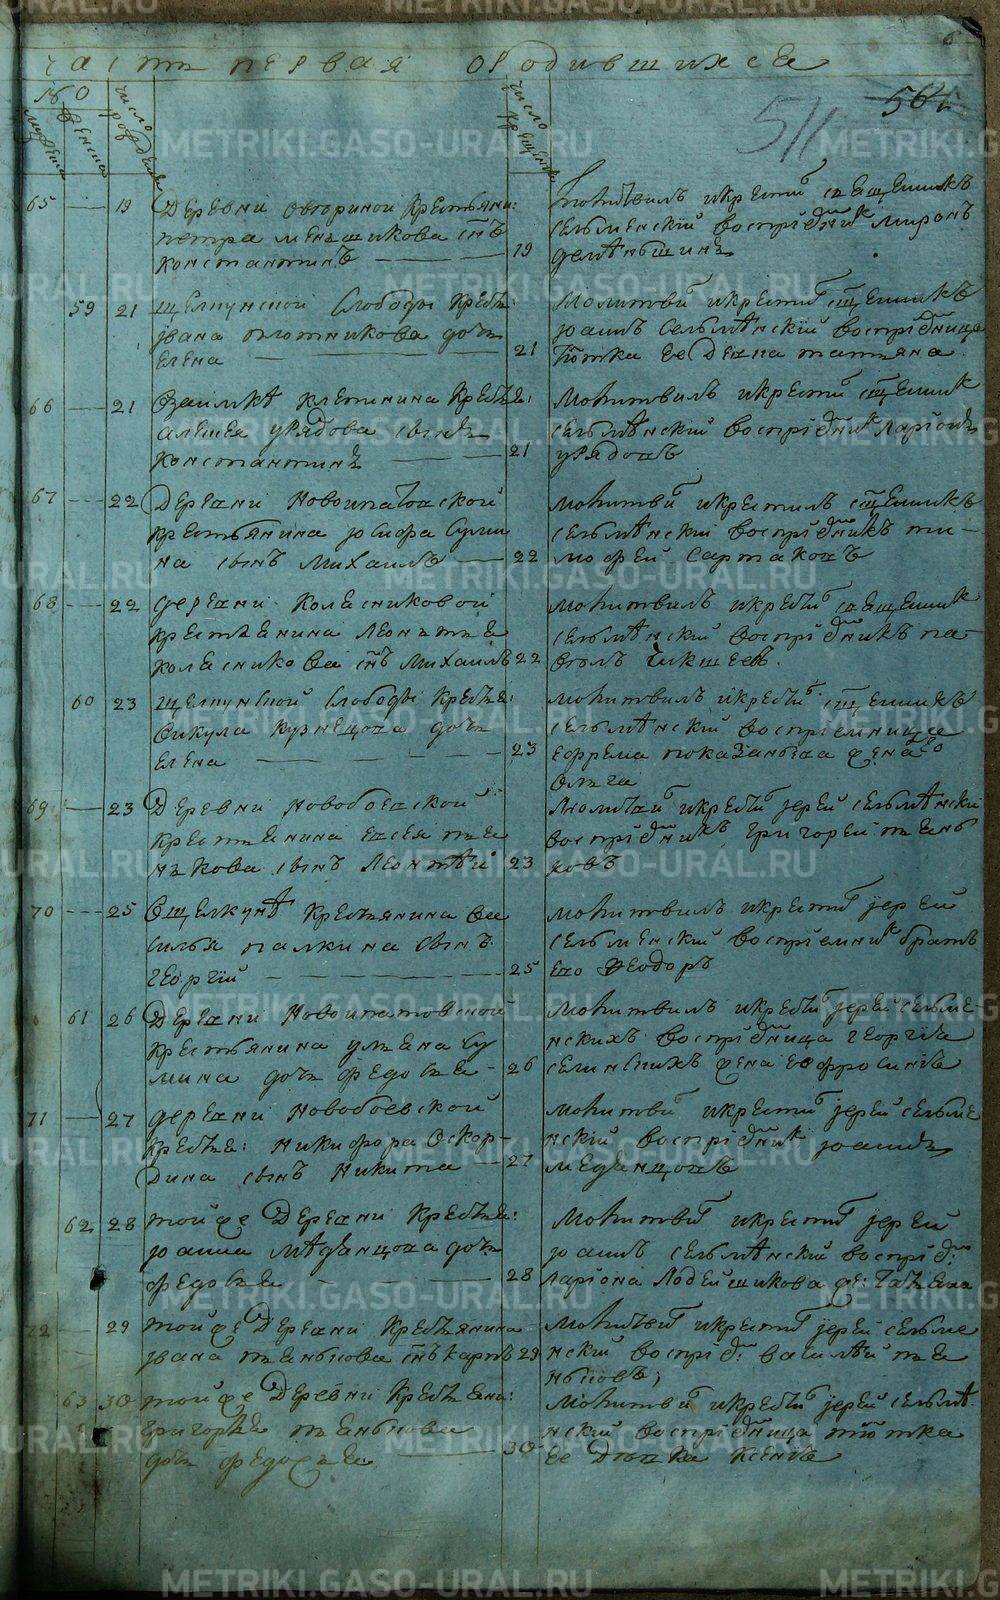 часть первая о родившихся
564
511
№
мужеска
женска
число рождения
число крещения
65 19 Деревни овориной крестьяни:
петра меньшикова снъ
константинъ 19
молитвилъ икрестил священникъ
сельменскїй воспрїемник миронъ
59 21 щелкунской слободы кресть:
iвана плотникова дочь
елена 21
Молитвил икрестил сщенникъ
iоаннъ сельмѣнскїй воспрїемница
тётка ее девка татьяна
66 21 клепинина крестья:
алексея урядова сынъ
константинъ 21
молитвилъ икрестил сщенник
сельмѣнскїй воспрїемник ларїонъ
урядовъ
67 22 Деревни новоипатовской
крестьянина iосифа суми
на сынъ михаилъ 22
молитвил икрестилъ сщенникъ
сельмѣнскїй воспрїемникъ ти-
мофей сартаковъ
68 22 деревни колясниковой
крестьянина леонтья
коляскикова снъ михаилъ 22
молитвилъ икрестил священник
сельмѣнскїй воспрїемникъ па-
велъ чикшеевъ.
60 23 щелкунской слободы крестья:
викула кузнецова дочь
елена 23
молитвилъ икрестил сщенникъ
сельмѣнскїй воспрїемница
ефрема показаньева жена ево
ольга
69 23 Деревни новобоевской
крестьянина евсея тая
нькова сынъ леонтѣй 23
молитвил икрестил iерей сельмѣнскїй
воспрїемникъ григорей таянь
ковъ
70 25 вщелкунѣ крестьянина ва
силья палкина сынъ
георгїй 25
молитвилъ икрестил iерей
сельменскїй воспрїемник братъ
ево феодоръ
61 26 Деревни новоипатовской
крестьянина ульяна су
мина дочь федосья 26
молитвилъ икрестил iерей сельме-
нскихъ воспрїемница георгїя
жена евфросинья
71 27 деревни новобоевской
крестья: никифора оскор-
дина сынъ никита 27
молитвил икрестил iерей сельме
нскїй воспрїемник iоаннъ
медянцовъ
62 28 тойже Деревни крестья:
iоанна мѣдянцова дочь
федосья 28
молитвил икрестил iерей
iоаннъ сельмѣнскїй воспрїем:
ларїона лодейшикова же: татьяна
72 29 тойже Деревни крестьянина
iвана таянькова снъ карпъ 29
молитвил икрестил iерей сельме
нскїй воспрїем: василѣй тая
ньковъ;
63 30 тойже Деревни крестьяни:
григорья таянькова
дочь федосья 30
молитвил икрестил iерей сельмѣ-
нскїй воспрїемница тётка
ее Девка ксенья
METRIKI.GASO-URAL.RU